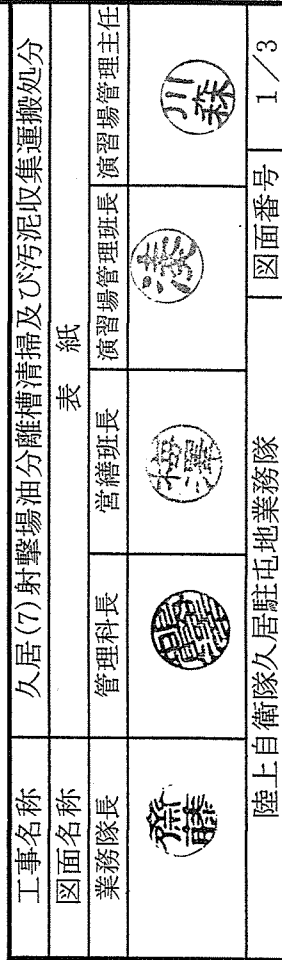 工事名称 久居(7)射撃場油分離槽清掃及び汚泥収集運搬処分
図面名称 表紙
業務隊長 管理科長 営繕班長 演習場管理班長 演習場管理主任
齋藤 湊 森川
陸上自衛隊久居駐屯地業務隊 図面番号 1/3